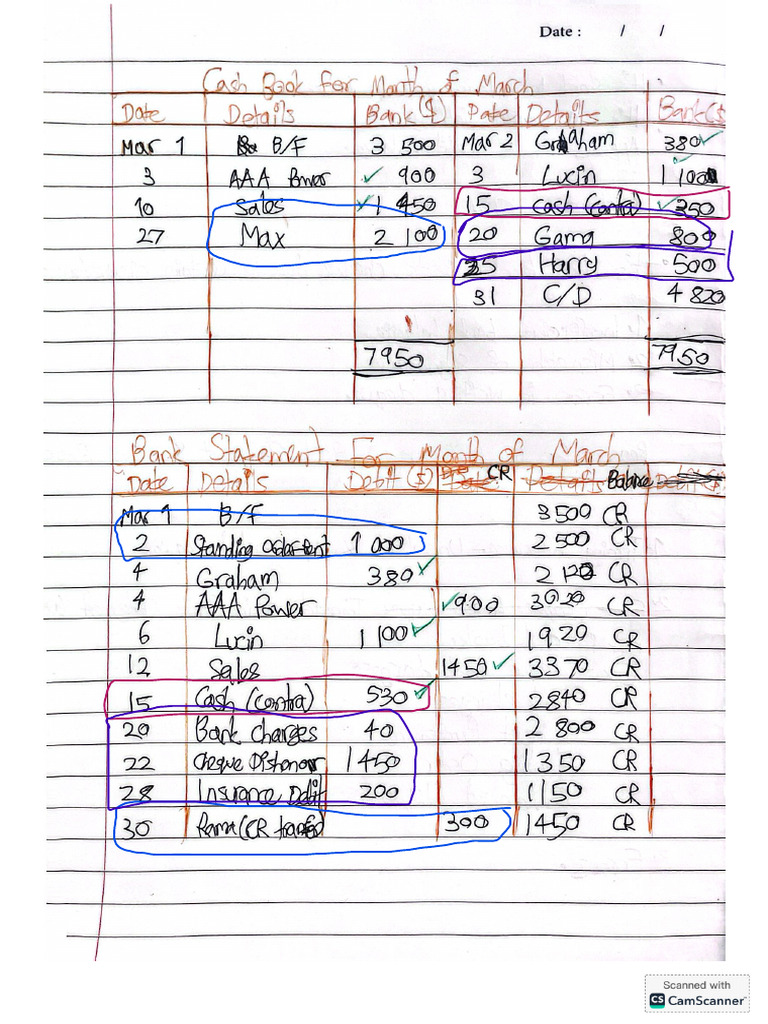 Date : / /
Cash Book For Month of March
Date Details Bank ($) Date Details Bank ($
Mar 1 B/F 3 500 Mar 2 Graham 380
3 AAA Power 900 3 Lucin 1 100
10 Sales 1 450 15 Cash (Contra) 350
27 Max 2 100 20 Gama 800
25 Harry 500
31 C/D 4 820
7950 7950
Bank Statement For Month of March
Date Details Debit ($) CR Balance
Mar 1 B/F 3500 CR
2 Standing 1 000 2 500 CR
4 Graham 380 2 120 CR
4 AAA Power 900 3020 CR
6 Lucin 1 100 1920 CR
12 Sales 1450 3370 CR
15 Cash (Contra) 530 2840 CR
20 Bank charges 40 2 800 CR
22 Cheque Dishonour 1450 1350 CR
28 Insurance Debit 200 1150 CR
30 Rama (CR 300 1450 CR
Scanned with
CS CamScanner